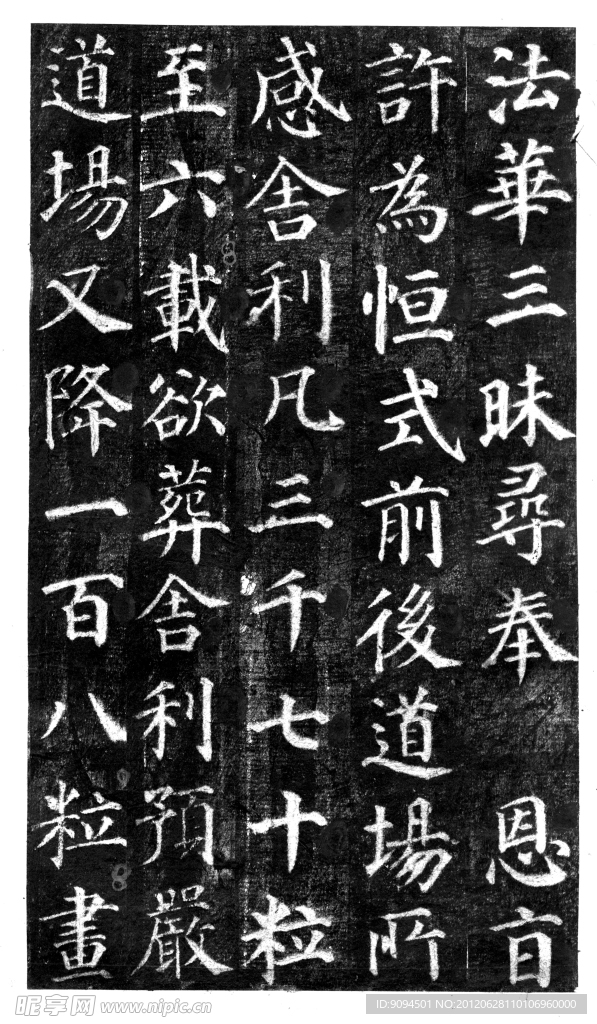 法華三昧尋奉　恩旨
許為恒式前後道場所
感舍利凡三千七十粒
至六載欲葬舍利預嚴
道場又降一百八粒畫
昵享网 www.nipic.cn
ID:9094501 NO:20120628110106960000